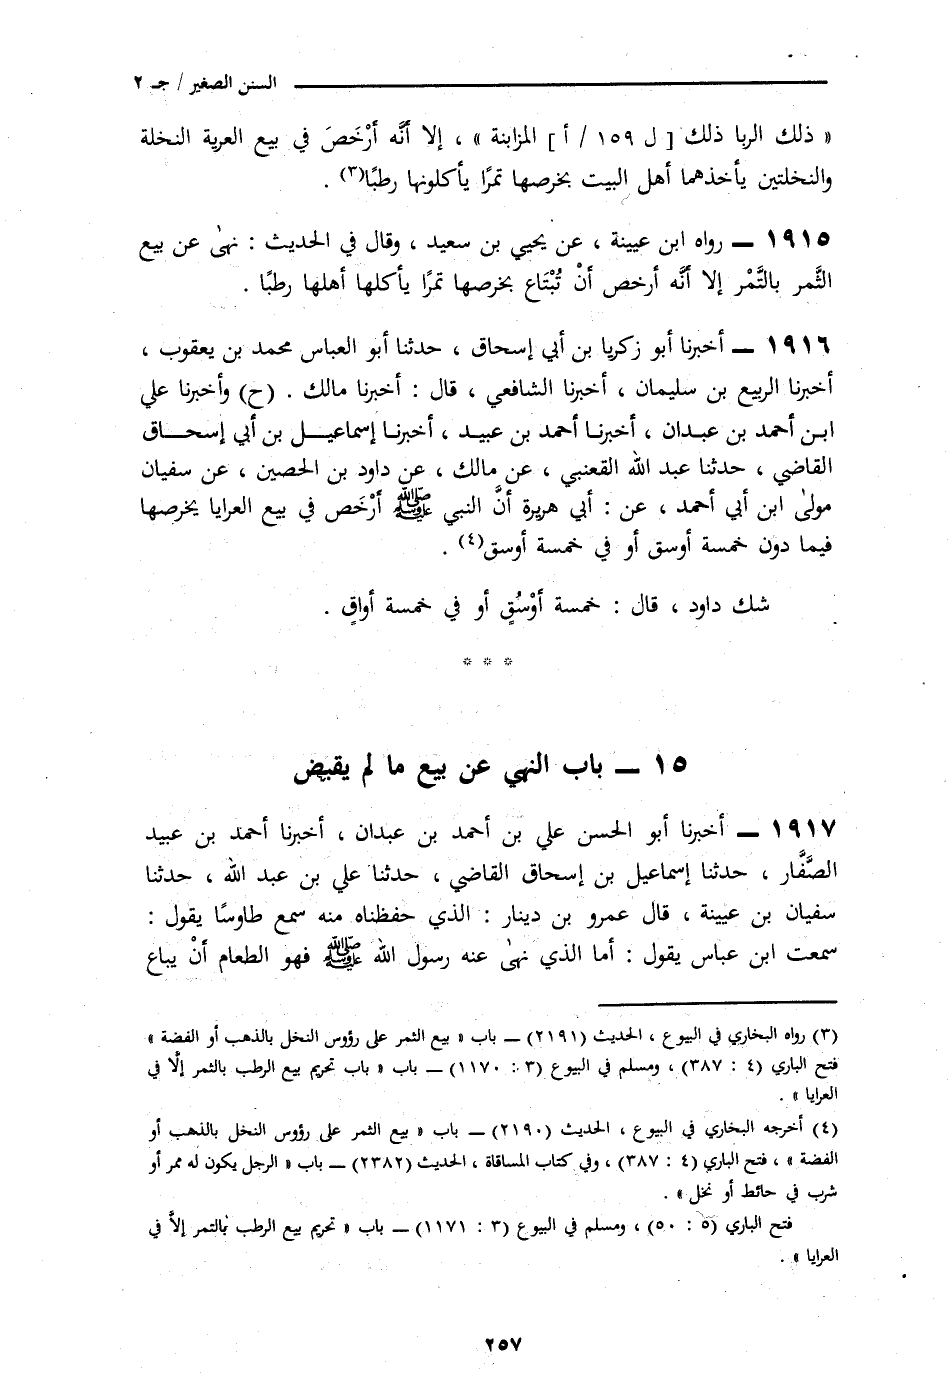 السنن الصغير / جـ ٢
« ذلك الربا ذلك [ ل ١٥٩ / أ ] المزابنة » ، إلا أنَّه أرْخَصَ في بيع العرية النخلة
والنخلتين يأخذهما أهل البيت بخرصها تمرًا يأكلونها رطبًا(٣) .
١٩١٥ ــ رواه ابن عيينة ، عن يحيي بن سعيد ، وقال في الحديث : نهىٰ عن بيع
الثَّمر بالتَّمْر إلا أنَّه أرخص أنْ تُبْتَاع بخرصها تمرًا يأكلها أهلها رطبًا .
١٩١٦ ــ أخبرنا أبو زكريا بن أبي إسحاق ، حدثنا أبو العباس محمد بن يعقوب ،
أخبرنا الربيع بن سليمان ، أخبرنا الشافعي ، قال : أخبرنا مالك . (ح) وأخبرنا علي
ابن أحمد بن عبدان ، أخبرنا أحمد بن عبيد ، أخبرنا إسماعيل بن أبي إسحاق
القاضي ، حدثنا عبد الله القعنبي ، عن مالك ، عن داود بن الحصين ، عن سفيان
مولىٰ ابن أبي أحمد ، عن : أبي هريرة أنَّ النبي ﷺ أرْخَص في بيع العرايا بخرصها
فيما دون خمسة أوسق أو في خمسة أوسق(٤) .
شك داود ، قال : خمسة أوْسُقٍ أو في خمسة أواقٍ .
* * *
١٥ ــ باب النهي عن بيع ما لم يقبض
١٩١٧ ــ أخبرنا أبو الحسن علي بن أحمد بن عبدان ، أخبرنا أحمد بن عبيد
الصَّفَّار ، حدثنا إسماعيل بن إسحاق القاضي ، حدثنا علي بن عبد الله ، حدثنا
سفيان بن عيينة ، قال عمرو بن دينار : الذي حفظناه منه سمع طاوسًا يقول :
سمعت ابن عباس يقول : أما الذي نهىٰ عنه رسول الله ﷺ فهو الطعام أنْ يباع
(٣) رواه البخاري في البيوع ، الحديث (٢١٩١) ــ باب « بيع الثمر على رؤوس النخل بالذهب أو الفضة »
فتح الباري (٤ : ٣٨٧) ، ومسلم في البيوع (٣ : ١١٧٠) ــ باب « باب تحريم بيع الرطب بالثمر إلَّا في
العرايا » .
(٤) أخرجه البخاري في البيوع ، الحديث (٢١٩٠) ــ باب « بيع الثمر على رؤوس النخل بالذهب أو
الفضة » ، فتح الباري (٤ : ٣٨٧) ، وفي كتاب المساقاة ، الحديث (٢٣٨٢) ــ باب « الرجل يكون له ممر أو
شرب في حائط أو نخل » .
فتح الباري (٥ : ٥٠) ، ومسلم في البيوع (٣ : ١١٧١) ــ باب « تحريم بيع الرطب بالتمر إلاَّ في
العرايا » .
٢٥٧